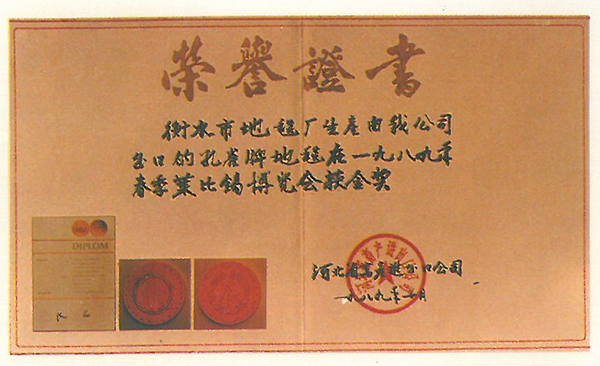 榮譽證書
衡水市地毯厂生產由我公司
出口的孔雀牌地毯在一九八九年
春季莱比锡博览会获金奖
DIPLOM
河北省畜產進出口公司
一九八九年七月